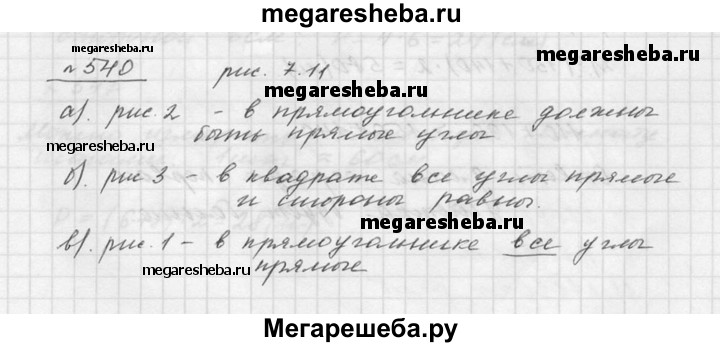 megaresheba.ru
megaresheba.ru
№ 540 рис. 7.11
а). рис. 2 - в прямоугольнике должны
быть прямые углы
megaresheba.ru
б). рис 3 - в квадрате все углы прямые
и стороны равны.
megaresheba.ru
в). рис. 1 - в прямоугольнике все углы
прямые
megaresheba.ru
Мегарешеба.ру